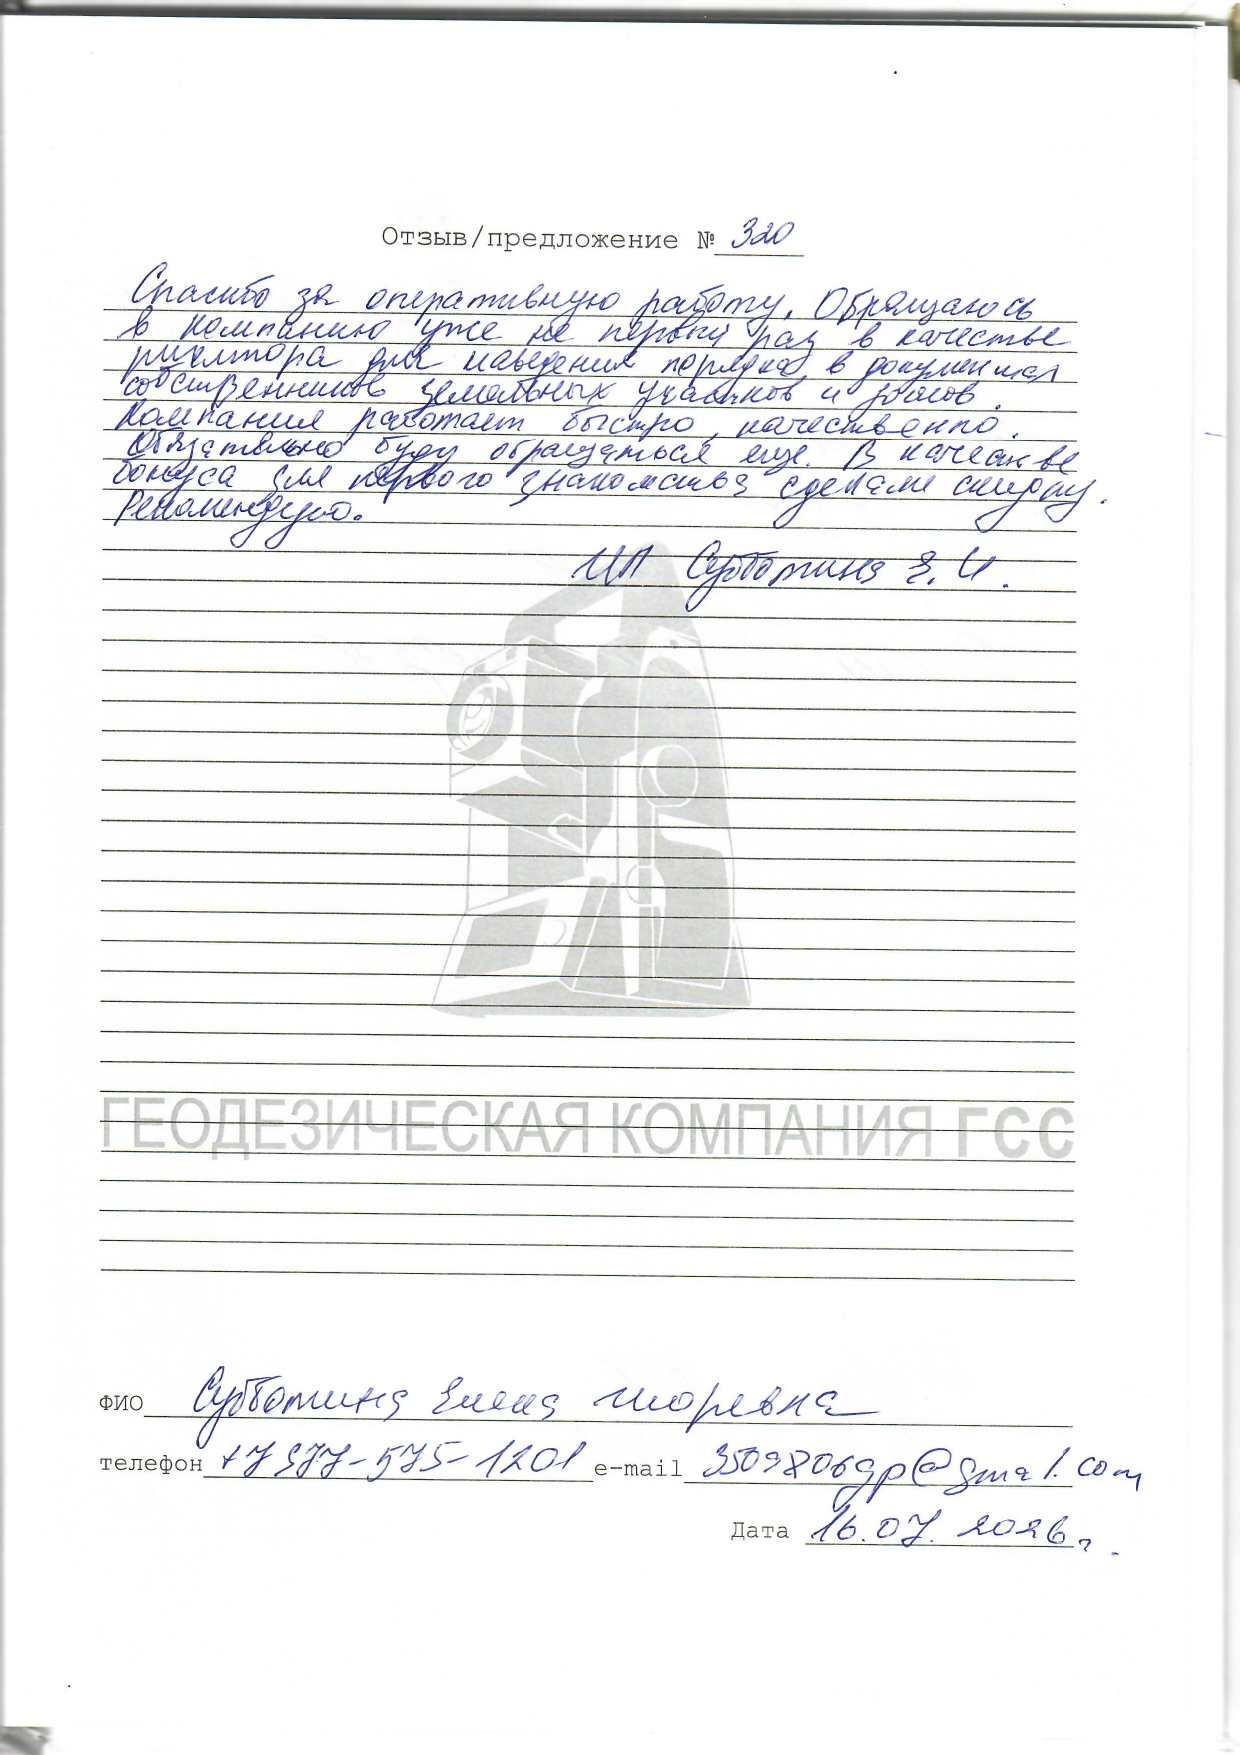 Отзыв/предложение № 320
Спасибо за оперативную работу. Обращаюсь
в компанию уже не первый раз в качестве
риелтора для наведения порядка в документах
собственников земельных участков и домов.
Компания работает быстро, качественно.
Обязательно буду обращаться еще. В качестве
бонуса для первого знакомства сделали скидку.
Рекомендую.
ИП Субботина Е.И.
ГЕОДЕЗИЧЕСКАЯ КОМПАНИЯ ГСС
ФИО Субботина Елена Игоревна
телефон +7977-575-1201 e-mail 3509806gp@gmail.com
Дата 16.07.2026г.